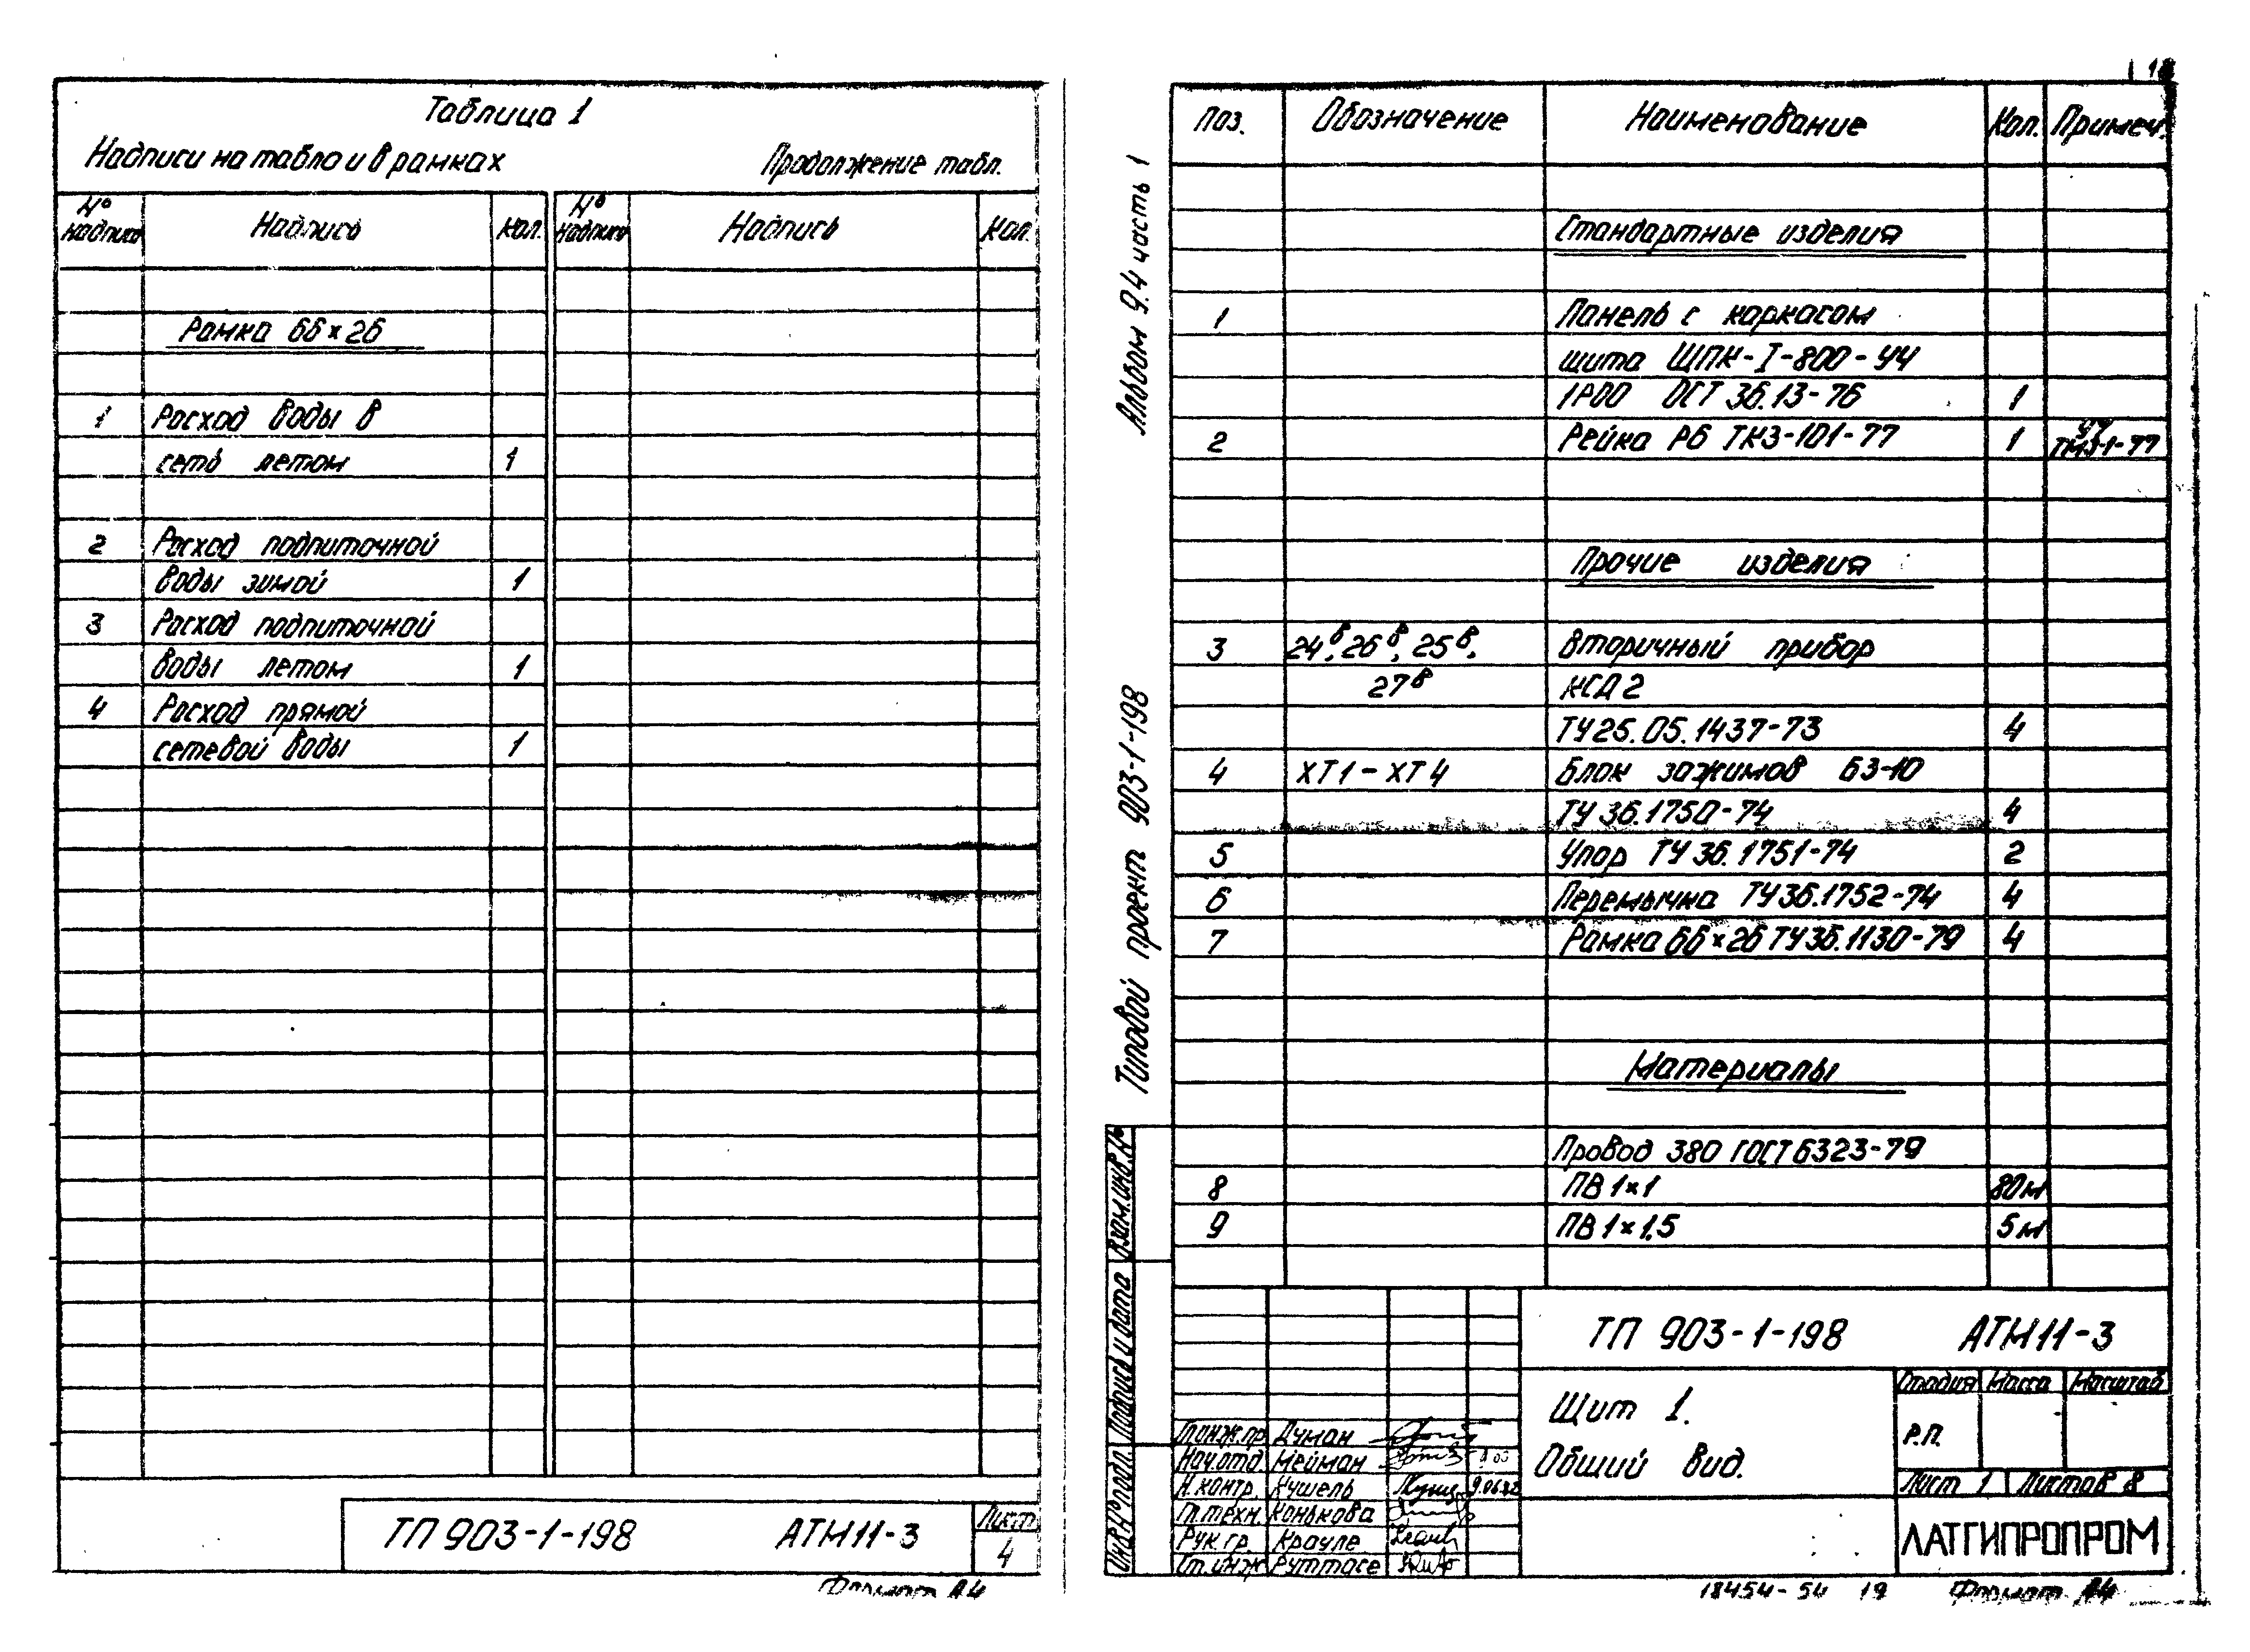 Таблица 1
Надписи на табло и в рамках
Продолжение табл.
№ надписи Надпись Кол. № надписи Надпись Кол.
Рамка 66×26
1 Расход воды в
сеть летом 1
2 Расход подпиточной
воды зимой 1
3 Расход подпиточной
воды летом 1
4 Расход прямой
сетевой воды 1
ТП 903-1-198 АТМ11-3
Лист
4
Формат А4
Альбом 9.4 часть 1
Типовой проект 903-1-198
Взам.инв.№
Подпись и дата
Инв.№ подл.
Поз. Обозначение Наименование Кол. Примеч.
Стандартные изделия
1 Панель с каркасом
щита ЩПК-I-800-УЧ
1Р00 ОСТ 36.13-76 1
2 Рейка Р6 ТК3-101-77 1 ТМ3-1-77
Прочие изделия
3 24в, 26в, 25в, Вторичный прибор
27в КСД2
ТУ25.05.1437-73 4
4 ХТ1-ХТ4 Блок зажимов БЗ-10
ТУ 36.1750-74 4
5 Упор ТУ 36.1751-74 2
6 Перемычка ТУ36.1752-74 4
7 Рамка 66×26 ТУ36.1130-79 4
Материалы
Провод 380 ГОСТ 6323-79
8 ПВ 1×1 80м
9 ПВ 1×1,5 5м
ТП 903-1-198 АТМ11-3
Щит 1.
Общий вид.
Стадия Масса Масштаб
Р.П.
Лист 1 Листов 8
Гл.инж.пр. Думан
Нач.отд. Мейман
Н.контр. Кушель 9.06.82
Гл.техн. Конькова
Рук.гр. Крауле
Ст.инж. Руттасе
ЛАТГИПРОПРОМ
18454-54 19
Формат А4